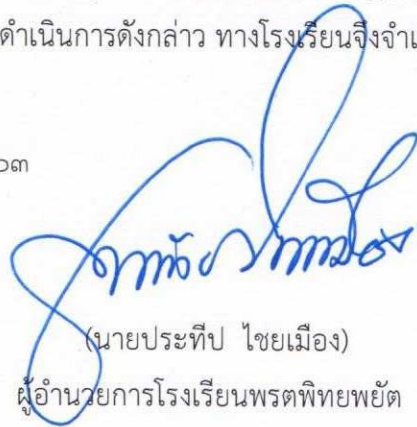 ดำเนินการดังกล่าว ทางโรงเรียนจึงจำเ
๖๓
(นายประทีป ไชยเมือง)
ผู้อำนวยการโรงเรียนพรตพิทยพยัต